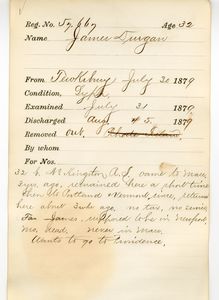 Reg. No. 57,667 Age 32
Name James Dugan
From Tewksbury July 30 1879
Condition,
Examined July 31 1879
Discharged Aug 5 1879
Removed out. Rhode Island.
By whom
For Nos.
32 b. N. Kingston R.I. came to Mass
yrs. ago, remained here a short time
then to Portland Vermont, since, return
here about 3 wks ago. no tax, no service
Fa James, supposed to be in Newport,
Mo. dead, never in Mass.
Wants to go to Providence.